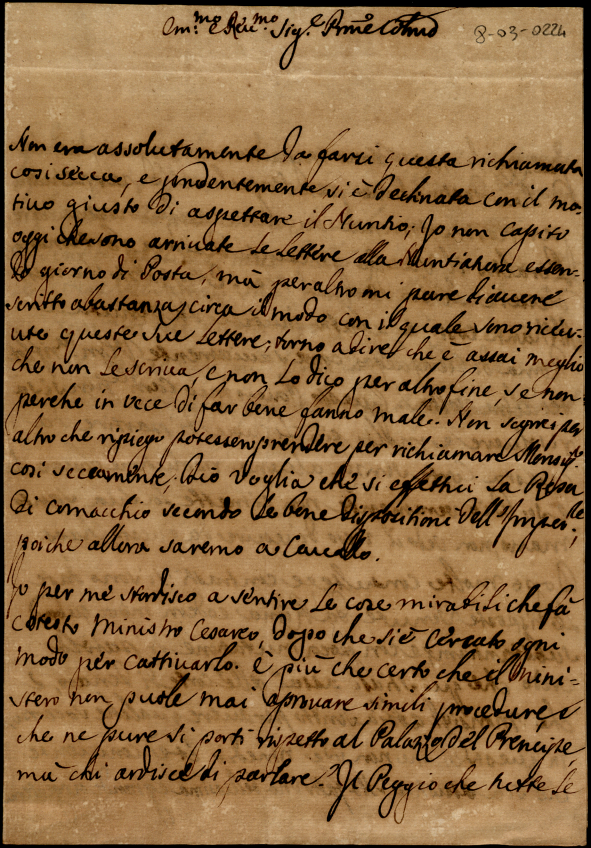 Em.mo e Rev.mo Sig.e P.rone Col.mo
8-03-0224
Non era assolutamente da farsi questa richiamata
così secca, e prudentemente si è declinata con il mo-
tivo giusto di aspettare il Nuntio; Io non capito
oggi che sono arrivate le lettere alla Nuntiatura essen-
do giorno di Posta, mà per altro mi pare di avere
scritto abastanza circa il modo con il quale sono ricevu-
ute queste sue lettere; torno a dire che è assai meglio
che non le scriva, e non lo dico per altro fine, se non
perche in vece di far bene fanno male. Non saprei per
altro che ripiego potessero prendere per richiamare Monsig.r
così seccamente; Dio voglia che si effettui la Resa
di Comacchio secondo le bene dispositioni dell'Imper.le;
poiche allora saremo a Cavallo.
Io per me stordisco a sentire le cose mirabili che fà
cotesto Ministro Cesareo, dopo che si è cercato ogni
modo per cattivarlo. è più che certo che il Mini-
stero non puole mai aprovare simili procedure, e
che ne pure si porti rispetto al Palazzo del Prencipe,
mà chi ardisce di parlare? Il Peggio che tutte le